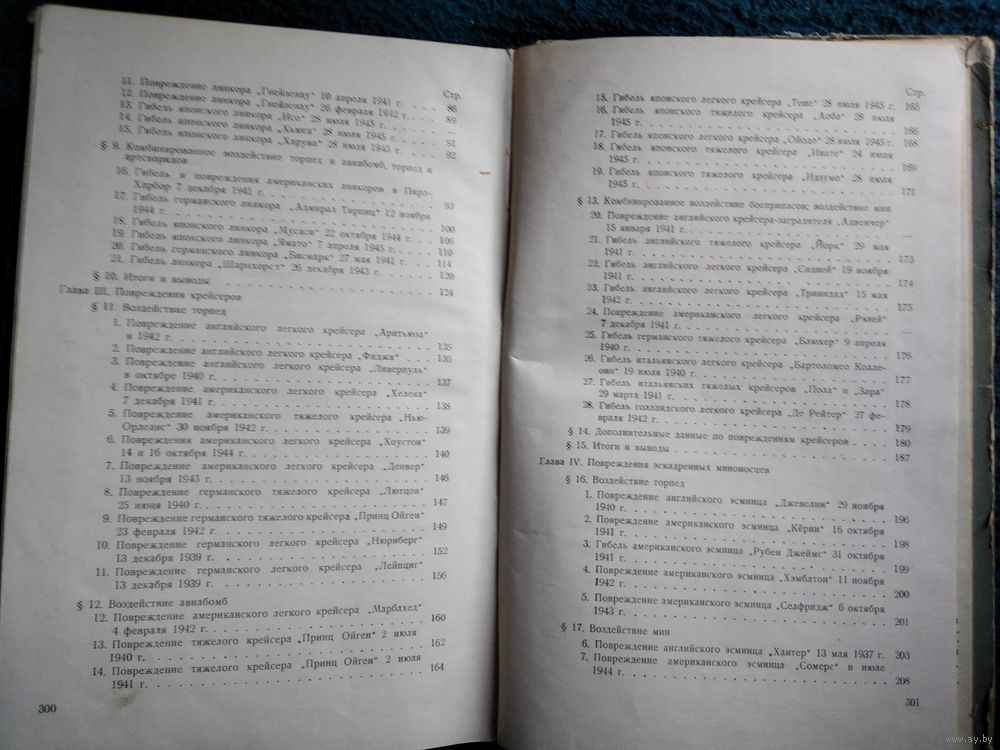 Стр.
11. Повреждение линкора „Гнейзенау“ 10 апреля 1941 г. . . . 86
12. Повреждение линкора „Гнейзенау“ 26 февраля 1942 г. . . 89
13. Гибель японского линкора „Исе“ 28 июля 1945 г. . . . . —
14. Гибель японского линкора „Хьюга“ 28 июля 1945 г. . . . 91
15. Гибель японского линкора „Харуна“ 28 июля 1945 г. . . . 92
§ 9. Комбинированное воздействие торпед и авиабомб, торпед и
артснарядов
16. Гибель и повреждения американских линкоров в Пирл-
Харбор 7 декабря 1941 г. . . . . . . . . . . . 93
17. Гибель германского линкора „Адмирал Тирпиц“ 12 ноября
1944 г. . . . . . . . . . . . . . . . 100
18. Гибель японского линкора „Мусаси“ 22 октября 1944 г. . . 106
19. Гибель японского линкора „Ямато“ 7 апреля 1945 г. . . . 110
20. Гибель германского линкора „Бисмарк“ 27 мая 1941 г. . . 114
21. Гибель линкора „Шарнхорст“ 26 декабря 1943 г. . . . . 120
§ 10. Итоги и выводы . . . . . . . . . . . . 124
Глава III. Повреждения крейсеров
§ 11. Воздействие торпед
1. Повреждение английского легкого крейсера „Аритьюза“
в 1942 г. . . . . . . . . . . . . . . 135
2. Повреждение английского легкого крейсера „Фиджи“ . . . 136
3. Повреждение английского легкого крейсера „Ливерпуль“
в октябре 1940 г. . . . . . . . . . . . . 137
4. Повреждение американского легкого крейсера „Хелена“
7 декабря 1941 г. . . . . . . . . . . . . 138
5. Повреждение американского тяжелого крейсера „Нью-
Орлеанс“ 30 ноября 1942 г. . . . . . . . . . 139
6. Повреждения американского легкого крейсера „Хоустон“
14 и 16 октября 1944 г. . . . . . . . . . . 140
7. Повреждение американского легкого крейсера „Денвер“
13 ноября 1943 г. . . . . . . . . . . . . 146
8. Повреждение германского тяжелого крейсера „Лютцов“
25 июня 1940 г. . . . . . . . . . . . . . 147
9. Повреждение германского тяжелого крейсера „Принц Ойген“
23 февраля 1942 г. . . . . . . . . . . . . 149
10. Повреждение германского легкого крейсера „Нюрнберг“
13 декабря 1939 г. . . . . . . . . . . . . 152
11. Повреждение германского легкого крейсера „Лейпциг“
13 декабря 1939 г. . . . . . . . . . . . . 156
§ 12. Воздействие авиабомб
12. Повреждение американского легкого крейсера „Марблхед“
4 февраля 1942 г. . . . . . . . . . . . . 160
13. Повреждение тяжелого крейсера „Принц Ойген“ 2 июля
1940 г. . . . . . . . . . . . . . . . 162
14. Повреждение тяжелого крейсера „Принц Ойген“ 2 июля
1941 г. . . . . . . . . . . . . . . . 164
300
Стр.
15. Гибель японского легкого крейсера „Тоне“ 28 июля 1945 г. 165
16. Гибель японского тяжелого крейсера „Аоба“ 28 июля
1945 г. . . . . . . . . . . . . . . . 166
17. Гибель японского легкого крейсера „Ойодо“ 28 июля 1945 г. 168
18. Гибель японского тяжелого крейсера „Ивате“ 24 июля
1945 г. . . . . . . . . . . . . . . . 169
19. Гибель японского тяжелого крейсера „Идзумо“ 28 июля
1945 г. . . . . . . . . . . . . . . . 171
§ 13. Комбинированное воздействие боеприпасов; воздействие мин
20. Повреждение английского крейсера-заградителя „Адвенчер“
15 января 1941 г. . . . . . . . . . . . . —
21. Гибель английского тяжелого крейсера „Йорк“ 29 мая
1941 г. . . . . . . . . . . . . . . . 173
22. Гибель английского легкого крейсера „Сидней“ 19 ноября
1941 г. . . . . . . . . . . . . . . . 174
23. Гибель английского легкого крейсера „Тринидад“ 15 мая
1942 г. . . . . . . . . . . . . . . . 175
24. Повреждение американского легкого крейсера „Рэлей“
7 декабря 1941 г. . . . . . . . . . . . . —
25. Гибель германского тяжелого крейсера „Блюхер“ 9 апреля
1940 г. . . . . . . . . . . . . . . . 176
26. Гибель итальянского легкого крейсера „Бартоломео Коллео-
они“ 19 июля 1940 г. . . . . . . . . . . . 177
27. Гибель итальянских тяжелых крейсеров „Пола“ и „Зара“
29 марта 1941 г. . . . . . . . . . . . . 178
28. Гибель голландского легкого крейсера „Де Рейтер“ 27 фе-
враля 1942 г. . . . . . . . . . . . . . 179
§ 14. Дополнительные данные по повреждениям крейсеров . . . 180
§ 15. Итоги и выводы . . . . . . . . . . . . 187
Глава IV. Повреждения эскадренных миноносцев
§ 16. Воздействие торпед
1. Повреждение английского эсминца „Джевелин“ 29 ноября
1940 г. . . . . . . . . . . . . . . . 196
2. Повреждение американского эсминца „Кёрни“ 16 октября
1941 г. . . . . . . . . . . . . . . . 198
3. Гибель американского эсминца „Рубен Джеймс“ 31 октября
1941 г. . . . . . . . . . . . . . . . 199
4. Повреждение американского эсминца „Хэмблтон“ 11 ноября
1942 г. . . . . . . . . . . . . . . . 200
5. Повреждение американского эсминца „Селфридж“ 6 октября
1943 г. . . . . . . . . . . . . . . . 201
§ 17. Воздействие мин
6. Повреждение английского эсминца „Хантер“ 13 мая 1937 г. 203
7. Повреждение американского эсминца „Сомерс“ в июле
1944 г. . . . . . . . . . . . . . . . 208
301
www.ay.by